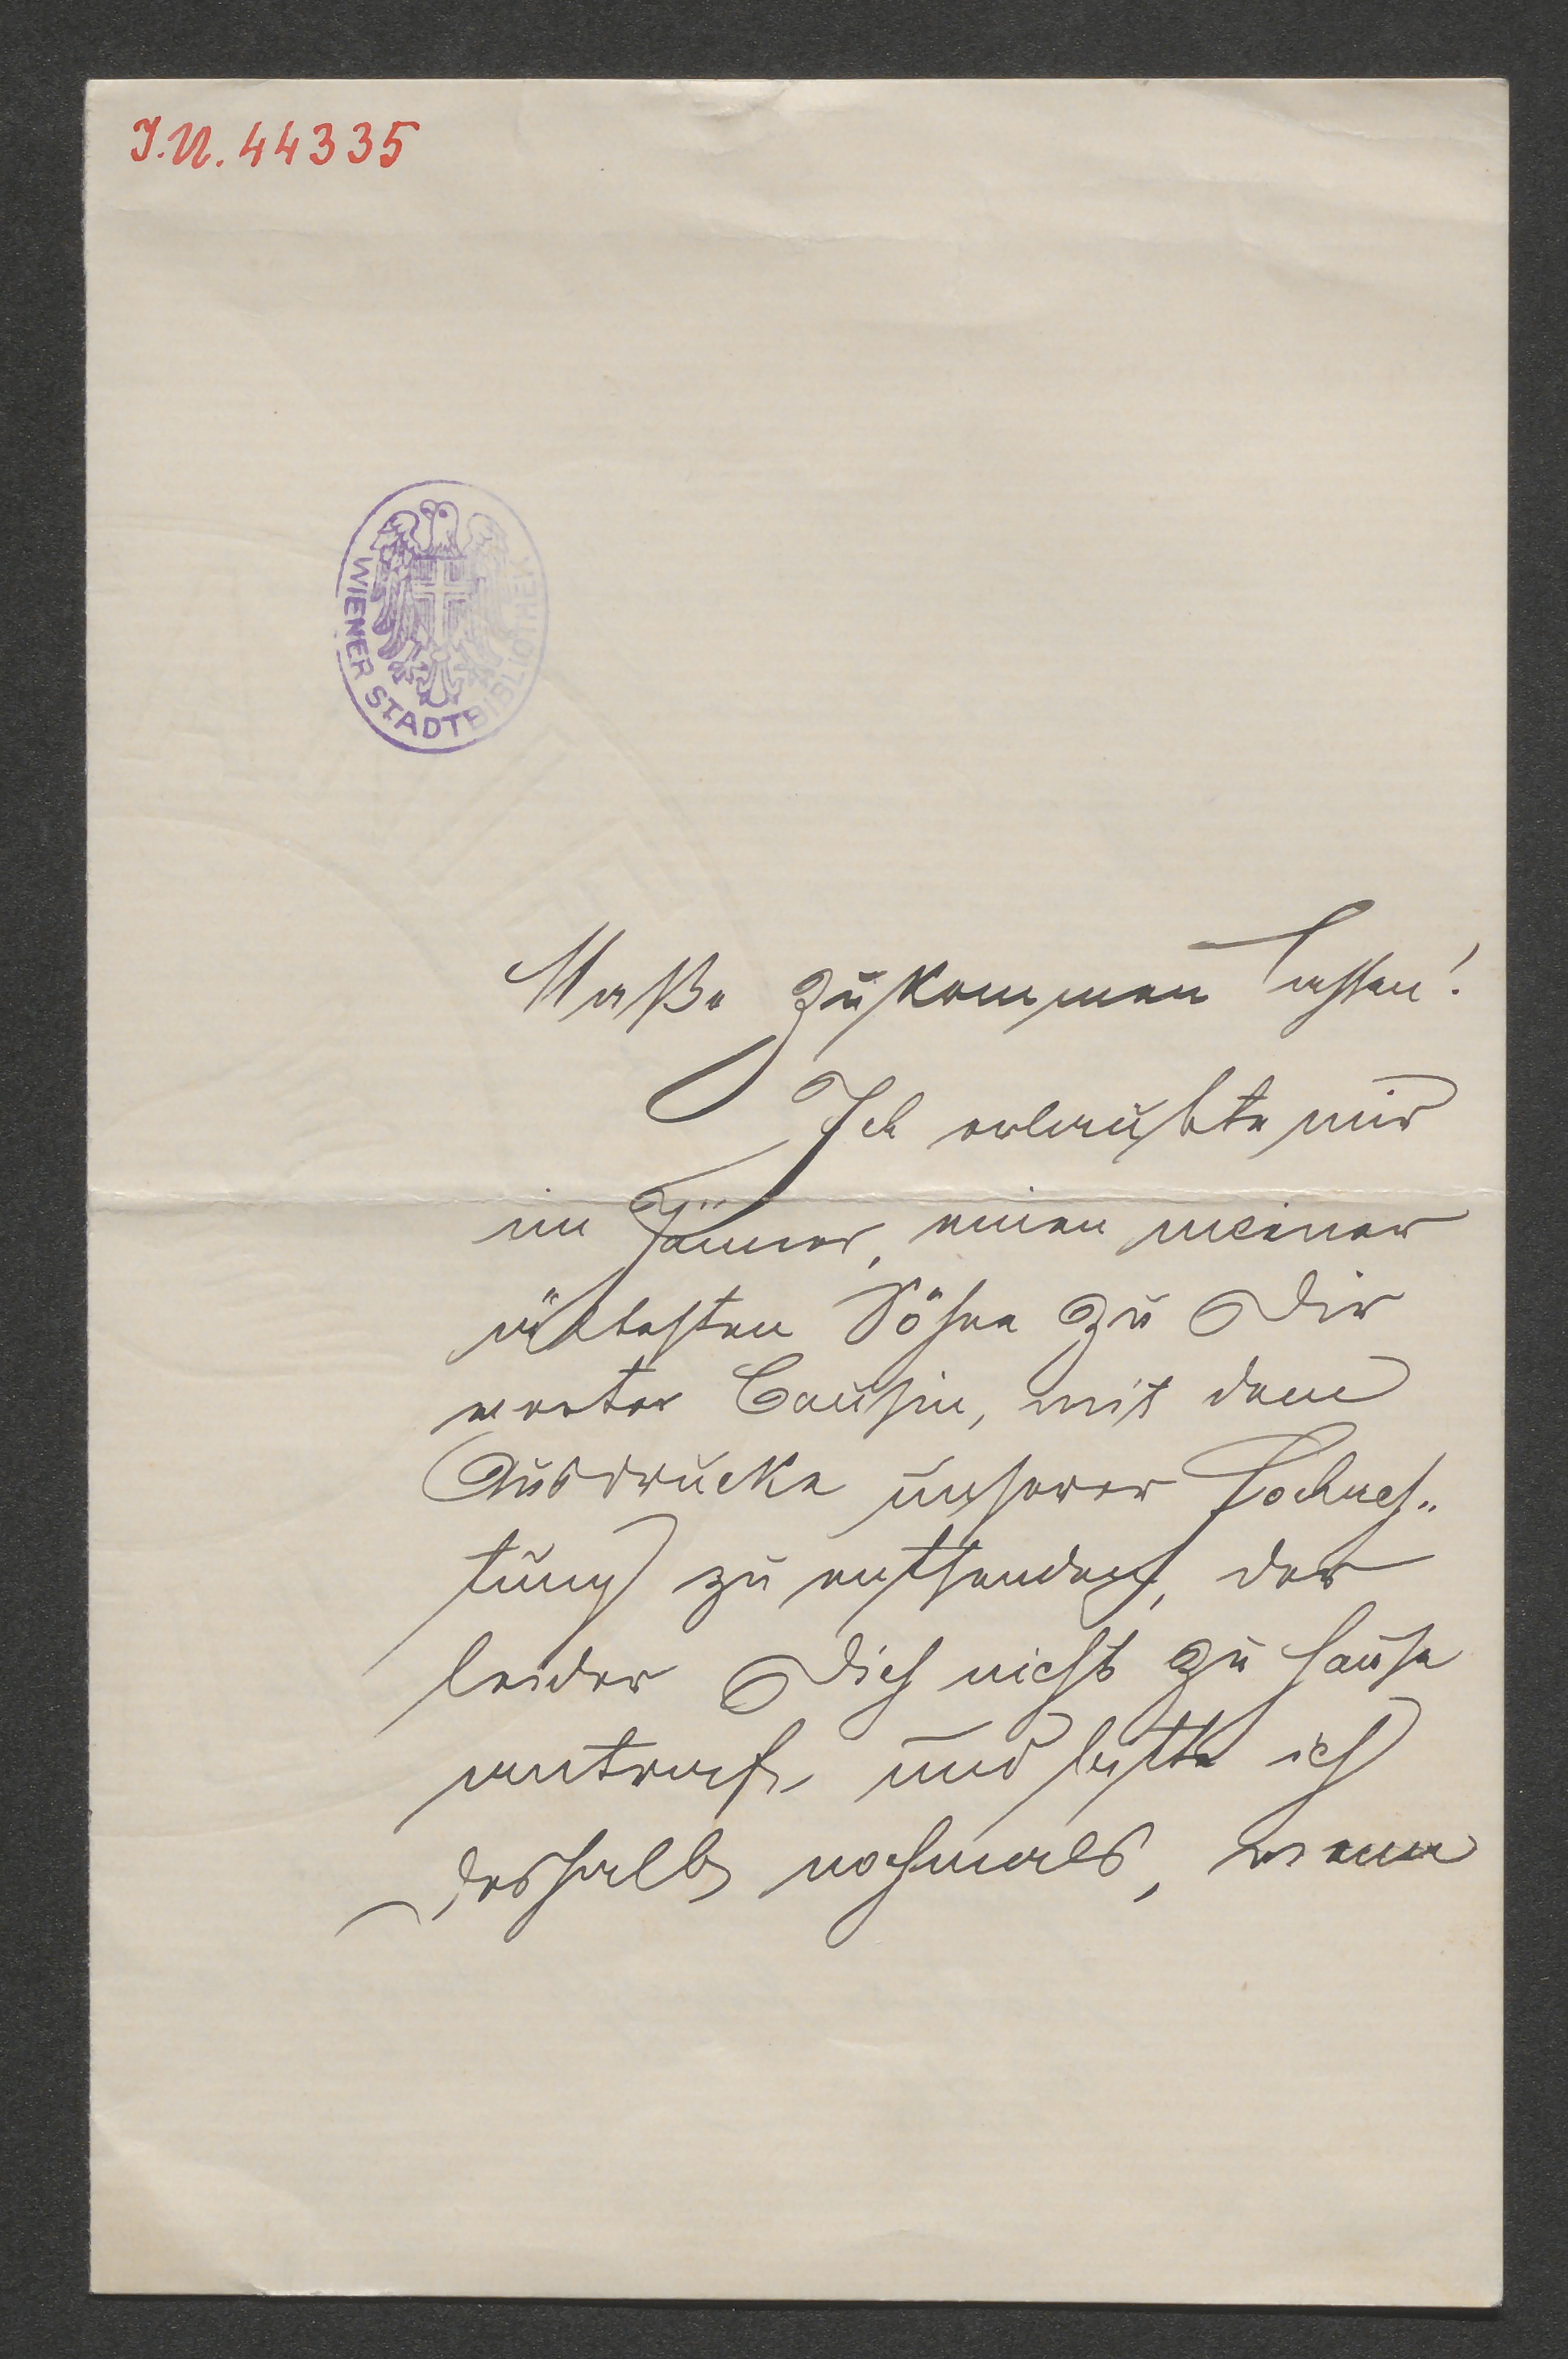 I.N. 44335
WIENER STADTBIBLIOTHEK
Maße zukommen lassen!
Ich erlaubte mir
im Jänner, einen meiner
ältesten Söhne zu Dir
werter Cousin, mit dem
Ausdrucke unserer Hochach„
tung zu entsenden, der
leider Dich nicht zu Hause
antraf, und bitte ich
deshalb nochmals, wenn